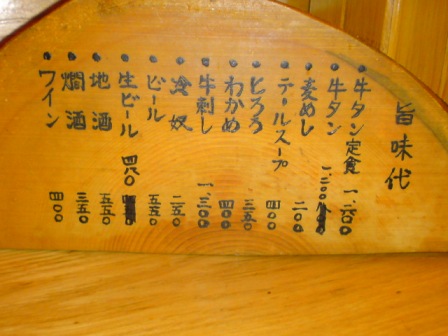 旨味代
牛タン定食 一、六〇〇
牛タン 一、二〇〇
麦めし 二〇〇
テールスープ 四〇〇
とろろ 三五〇
わかめ 四〇〇
牛刺し 一、三〇〇
冷奴 二五〇
ビール 五五〇
生ビール 四八〇
地酒 五五〇
燗酒 三五〇
ワイン 四〇〇